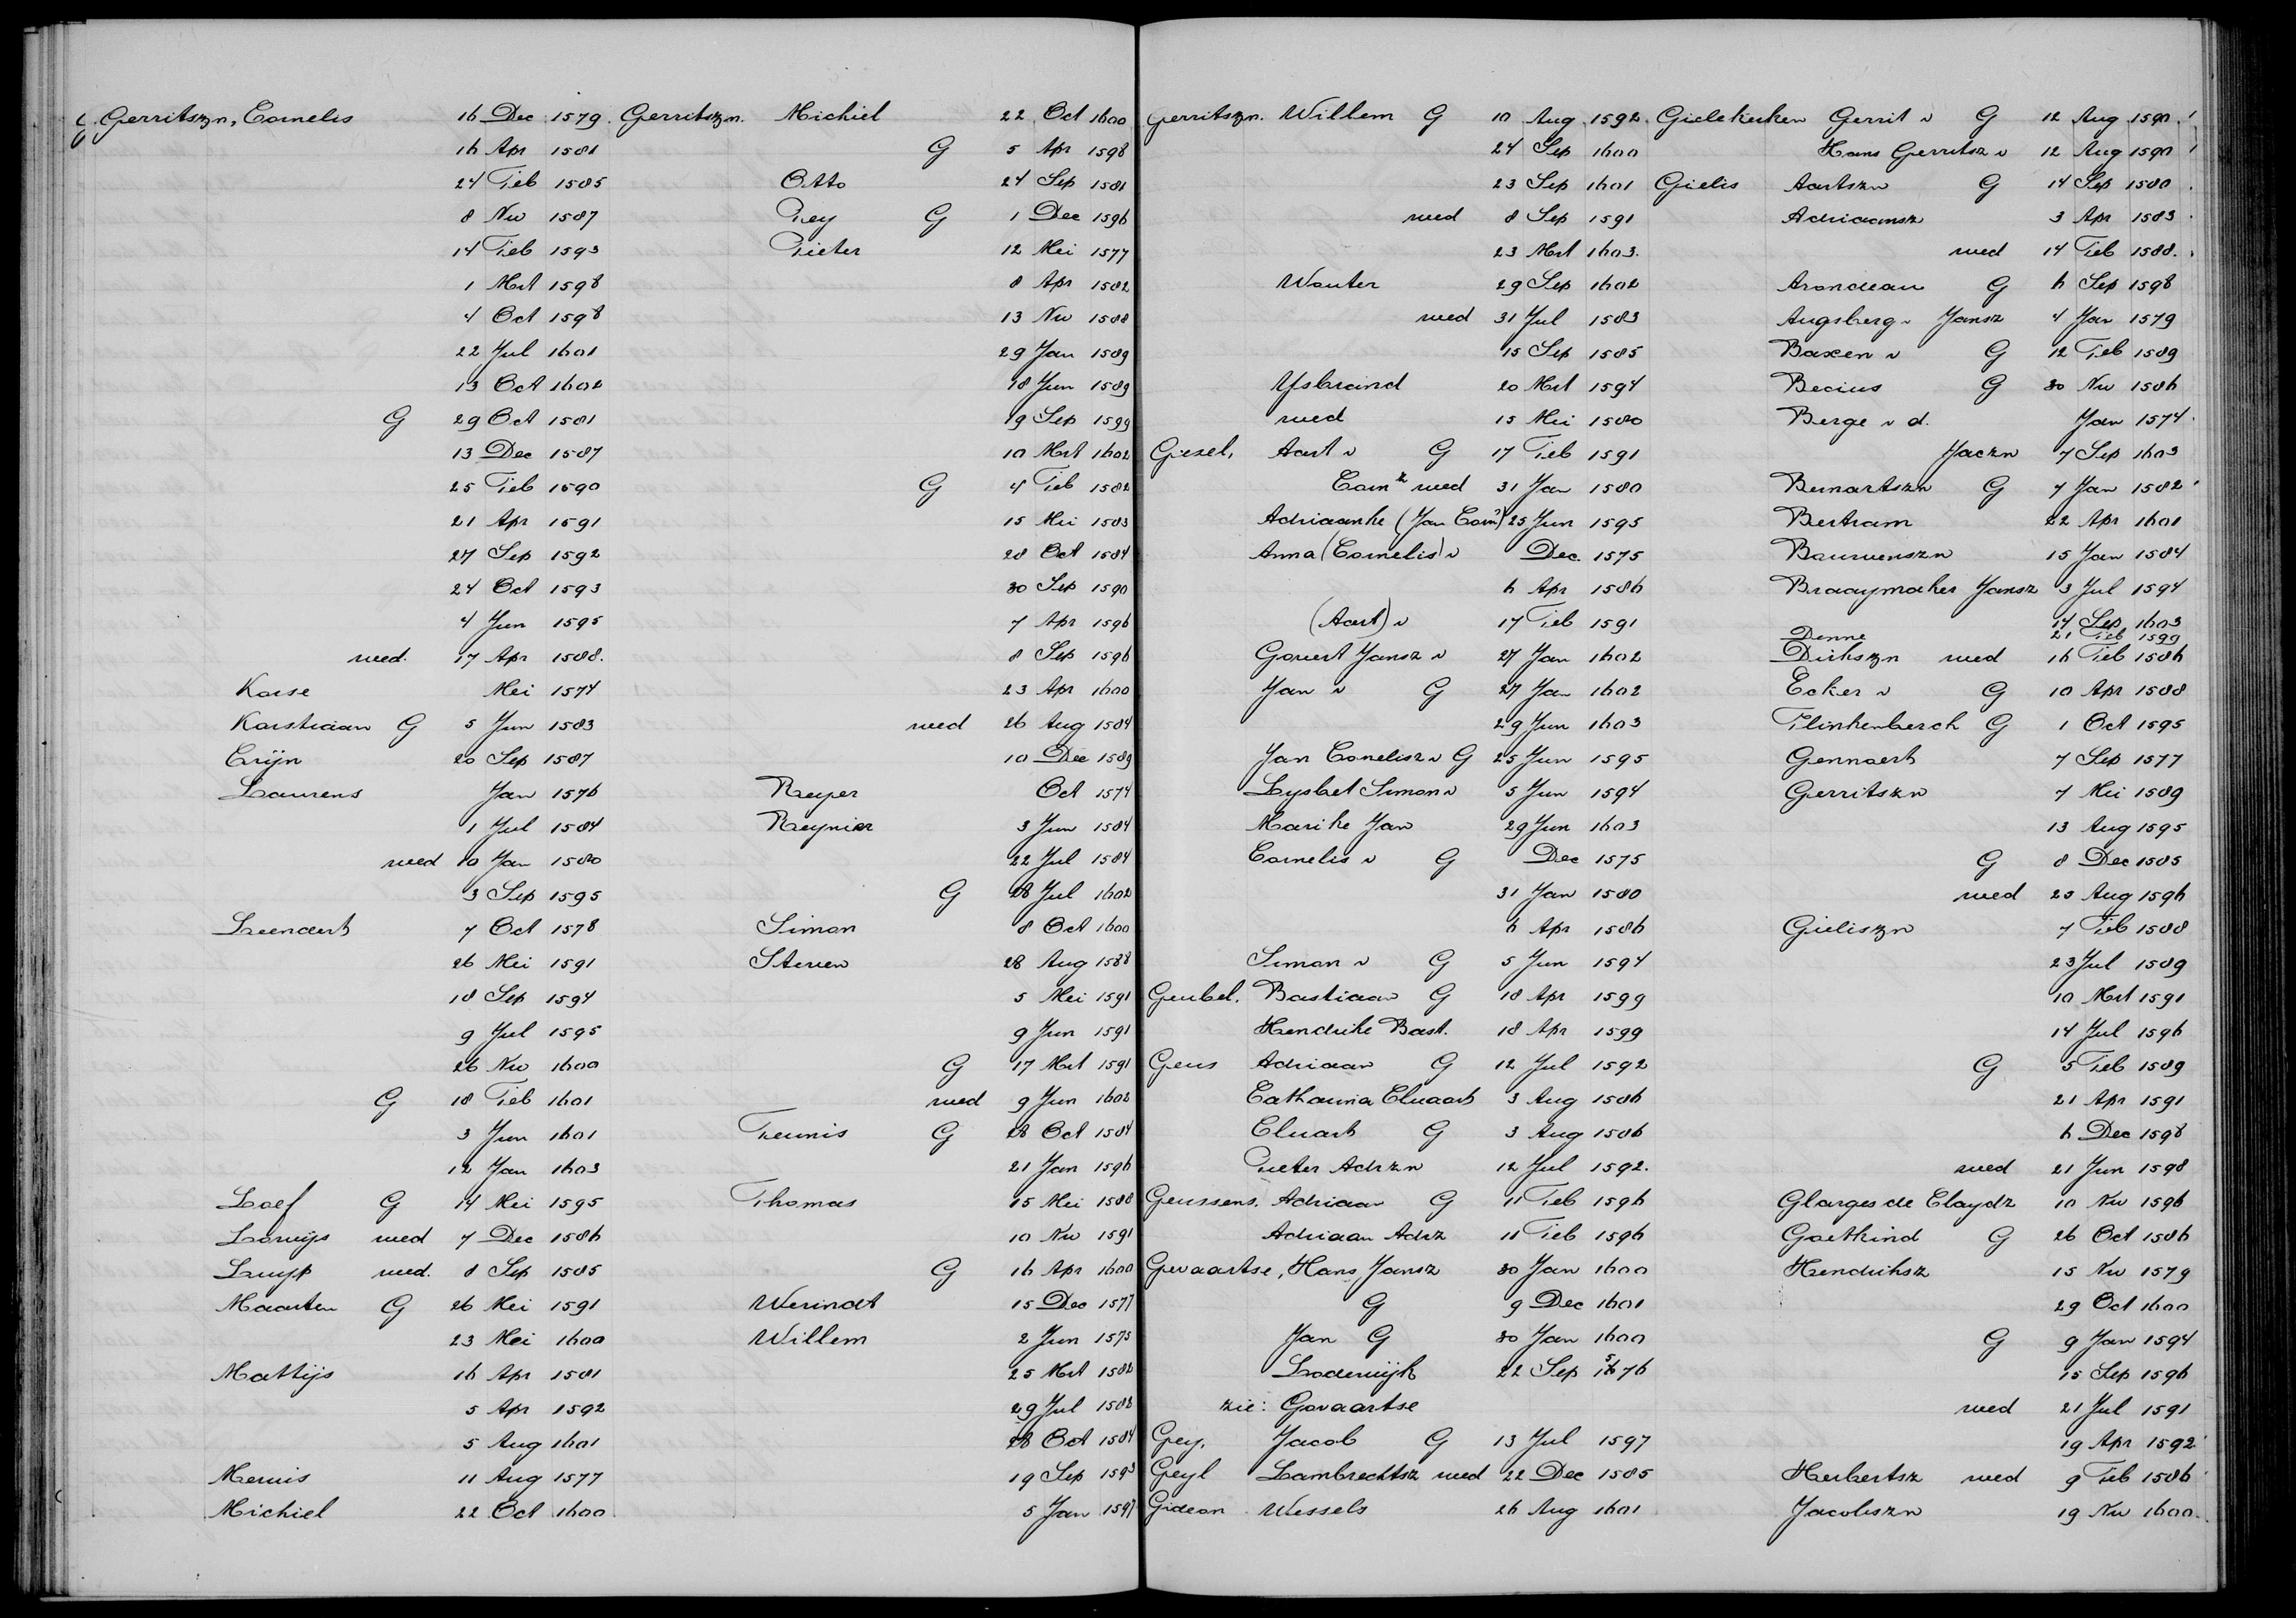 G. Gerritszn, Cornelis 16 Dec 1579
16 Apr 1581
24 Feb 1585
8 Nov 1587
14 Feb 1593
1 Mrt 1598
4 Oct 1598
22 Jul 1601
13 Oct 1602
G 29 Oct 1581
13 Dec 1587
25 Feb 1590
21 Apr 1591
27 Sep 1592
24 Oct 1593
4 Jun 1595
wed. 17 Apr 1588.
Korse Mei 1574
Korstiaan G 5 Jun 1583
Crijn 20 Sep 1587
Laurens Jan 1576
1 Jul 1584
wed 10 Jan 1580
3 Sep 1595
Leendert 7 Oct 1578
26 Mei 1591
18 Sep 1594
9 Jul 1595
26 Nov 1600
G 18 Feb 1601
3 Jun 1601
12 Jan 1603
Loef G 14 Mei 1595
Lowijs wed 7 Dec 1586
Luyp wed. 8 Sep 1585
Maarten G 26 Mei 1591
23 Mei 1600
Mattijs 16 Apr 1581
5 Apr 1592
5 Aug 1601
Meeuis 11 Aug 1577
Michiel 22 Oct 1600
Gerritszn. Michiel 22 Oct 1600
G 5 Apr 1598
Otto 24 Sep 1581
Pey G 1 Dec 1596
Pieter 12 Mei 1577
8 Apr 1582
13 Nov 1588
29 Jan 1589
18 Jun 1589
19 Sep 1599
10 Mrt 1602
G 4 Feb 1582
15 Mei 1583
28 Oct 1584
30 Sep 1590
7 Apr 1596
8 Sep 1596
23 Apr 1600
wed 26 Aug 1584
10 Dec 1589
Reyer Oct 1574
Reynier 3 Jun 1584
22 Jul 1584
G 28 Jul 1602
Simon 8 Oct 1600
Steven 28 Aug 1588
5 Mei 1591
9 Jun 1591
G 17 Mrt 1591
wed 9 Jun 1602
Teunis G 28 Oct 1584
21 Jan 1596
Thomas 15 Mei 1588
10 Nov 1591
G 16 Apr 1600
Werindt 15 Dec 1577
Willem 2 Jun 1575
25 Mrt 1582
29 Jul 1582
28 Oct 1584
19 Sep 1593
5 Jan 1597
Gerritszn. Willem G 10 Aug 1592
24 Sep 1600
23 Sep 1601
wed 8 Sep 1591
23 Mrt 1603.
Wouter 29 Sep 1602
wed 31 Jul 1583
15 Sep 1585
Ysbrand 20 Mrt 1594
wed 15 Mei 1580
Gesel, Aart v G 17 Feb 1591
Corn wed 31 Jan 1580
Adriaanke (Jan Corn) 25 Jun 1595
Anna (Cornelis) v Dec. 1575
6 Apr 1586
(Aart) v 17 Feb 1591
Govert Jansz v 27 Jan 1602
Jan v G 27 Jan 1602
29 Jun 1603
Jan Cornelisz v G 25 Jun 1595
Lysbet Simon v 5 Jun 1594
Marike Jan 29 Jun 1603
Cornelis v G Dec 1575
31 Jan 1580
6 Apr 1586
Simon v G 5 Jun 1594
Geubel. Bastiaan G 18 Apr 1599
Hendrike Bast. 18 Apr 1599
Geus Adriaan G 12 Jul 1592
Catharina Eluaart 3 Aug 1586
Eluart G 3 Aug 1586
Pieter Adrzn 12 Jul 1592.
Geussens. Adriaan G 11 Feb 1596
Adriaan Adrz 11 Feb 1596
Gevaartse, Hans Jansz 30 Jan 1600
G 9 Dec 1601
Jan G 30 Jan 1600
Lodewijk 22 Sep 1576
zie: Govaartse
Gey, Jacob G 13 Jul 1597
Geyl Lambrechtsz wed 22 Dec 1585
Gideon Wessels 26 Aug 1601
Gielekerken Gerrit v G 12 Aug 1590
Hans Gerritsz v 12 Aug 1590
Gielis Aartszn G 14 Sep 1580
Adriaansz 3 Apr 1583
wed 14 Feb 1588.
Arondeau G 6 Sep 1598
Augsberg v Jansz 4 Jan 1579
Baxen v G 12 Feb 1589
Becius G 30 Nov 1586
Berge v d. Jan 1574
Jaczn 7 Sep 1603
Bernartszn G 7 Jan 1582
Bertram 22 Apr 1601
Bouwenszn 15 Jan 1584
Braaymaker Jansz 3 Jul 1594
14 Sep 1603
Denne 21 Feb 1599
Dirkszn wed 16 Feb 1586
Ecker v G 10 Apr 1588
Flinkenberch G 1 Oct 1595
Gennaert 7 Sep 1577
Gerritszn 7 Mei 1589
13 Aug 1595
G 8 Dec 1585
wed 25 Aug 1596
Gieliszn 7 Feb 1588
23 Jul 1589
10 Mrt 1591
14 Jul 1596
G 5 Feb 1589
21 Apr 1591
6 Dec 1598
wed 21 Jun 1598
Glarges de Claydz 10 Nov 1596
Goetkind G 26 Oct 1586
Hendriksz 15 Nov 1579
29 Oct 1600
G 9 Jan 1594
15 Sep 1596
wed 21 Jul 1591
19 Apr 1592
Herbertsz wed 9 Feb 1586
Jacobszn 19 Nov 1600